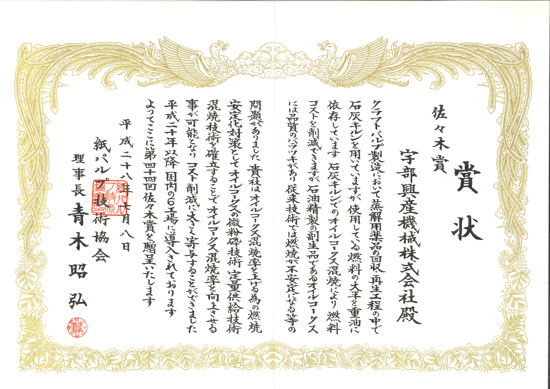 賞状
佐々木賞
宇部興産機械株式会社殿
クラフトパルプ製造において蒸解用薬品の回収再生工程の中で
石灰キルンを用いていますが使用している燃料の大半を重油に
依存しています 石灰キルンでのオイルコークス混焼により燃料
コストを削減できますが石油精製の副生品であるオイルコークス
には品質のバラツキがあり従来技術では燃焼が不安定になる等の
問題がありました 貴社はオイルコークス混焼率を上げる為の燃焼
安定化対策としてオイルコークスの微粉砕技術 定量供給技術
混焼技術を確立することでオイルコークス混焼率を向上させる
事が可能となりコスト削減に大きく寄与することができました
平成二十年以降国内の6工場に導入されております
よってここに第四十四回佐々木賞を贈呈いたします
平成二十八年十月八日
紙パルプ技術協会
理事長 青木昭弘